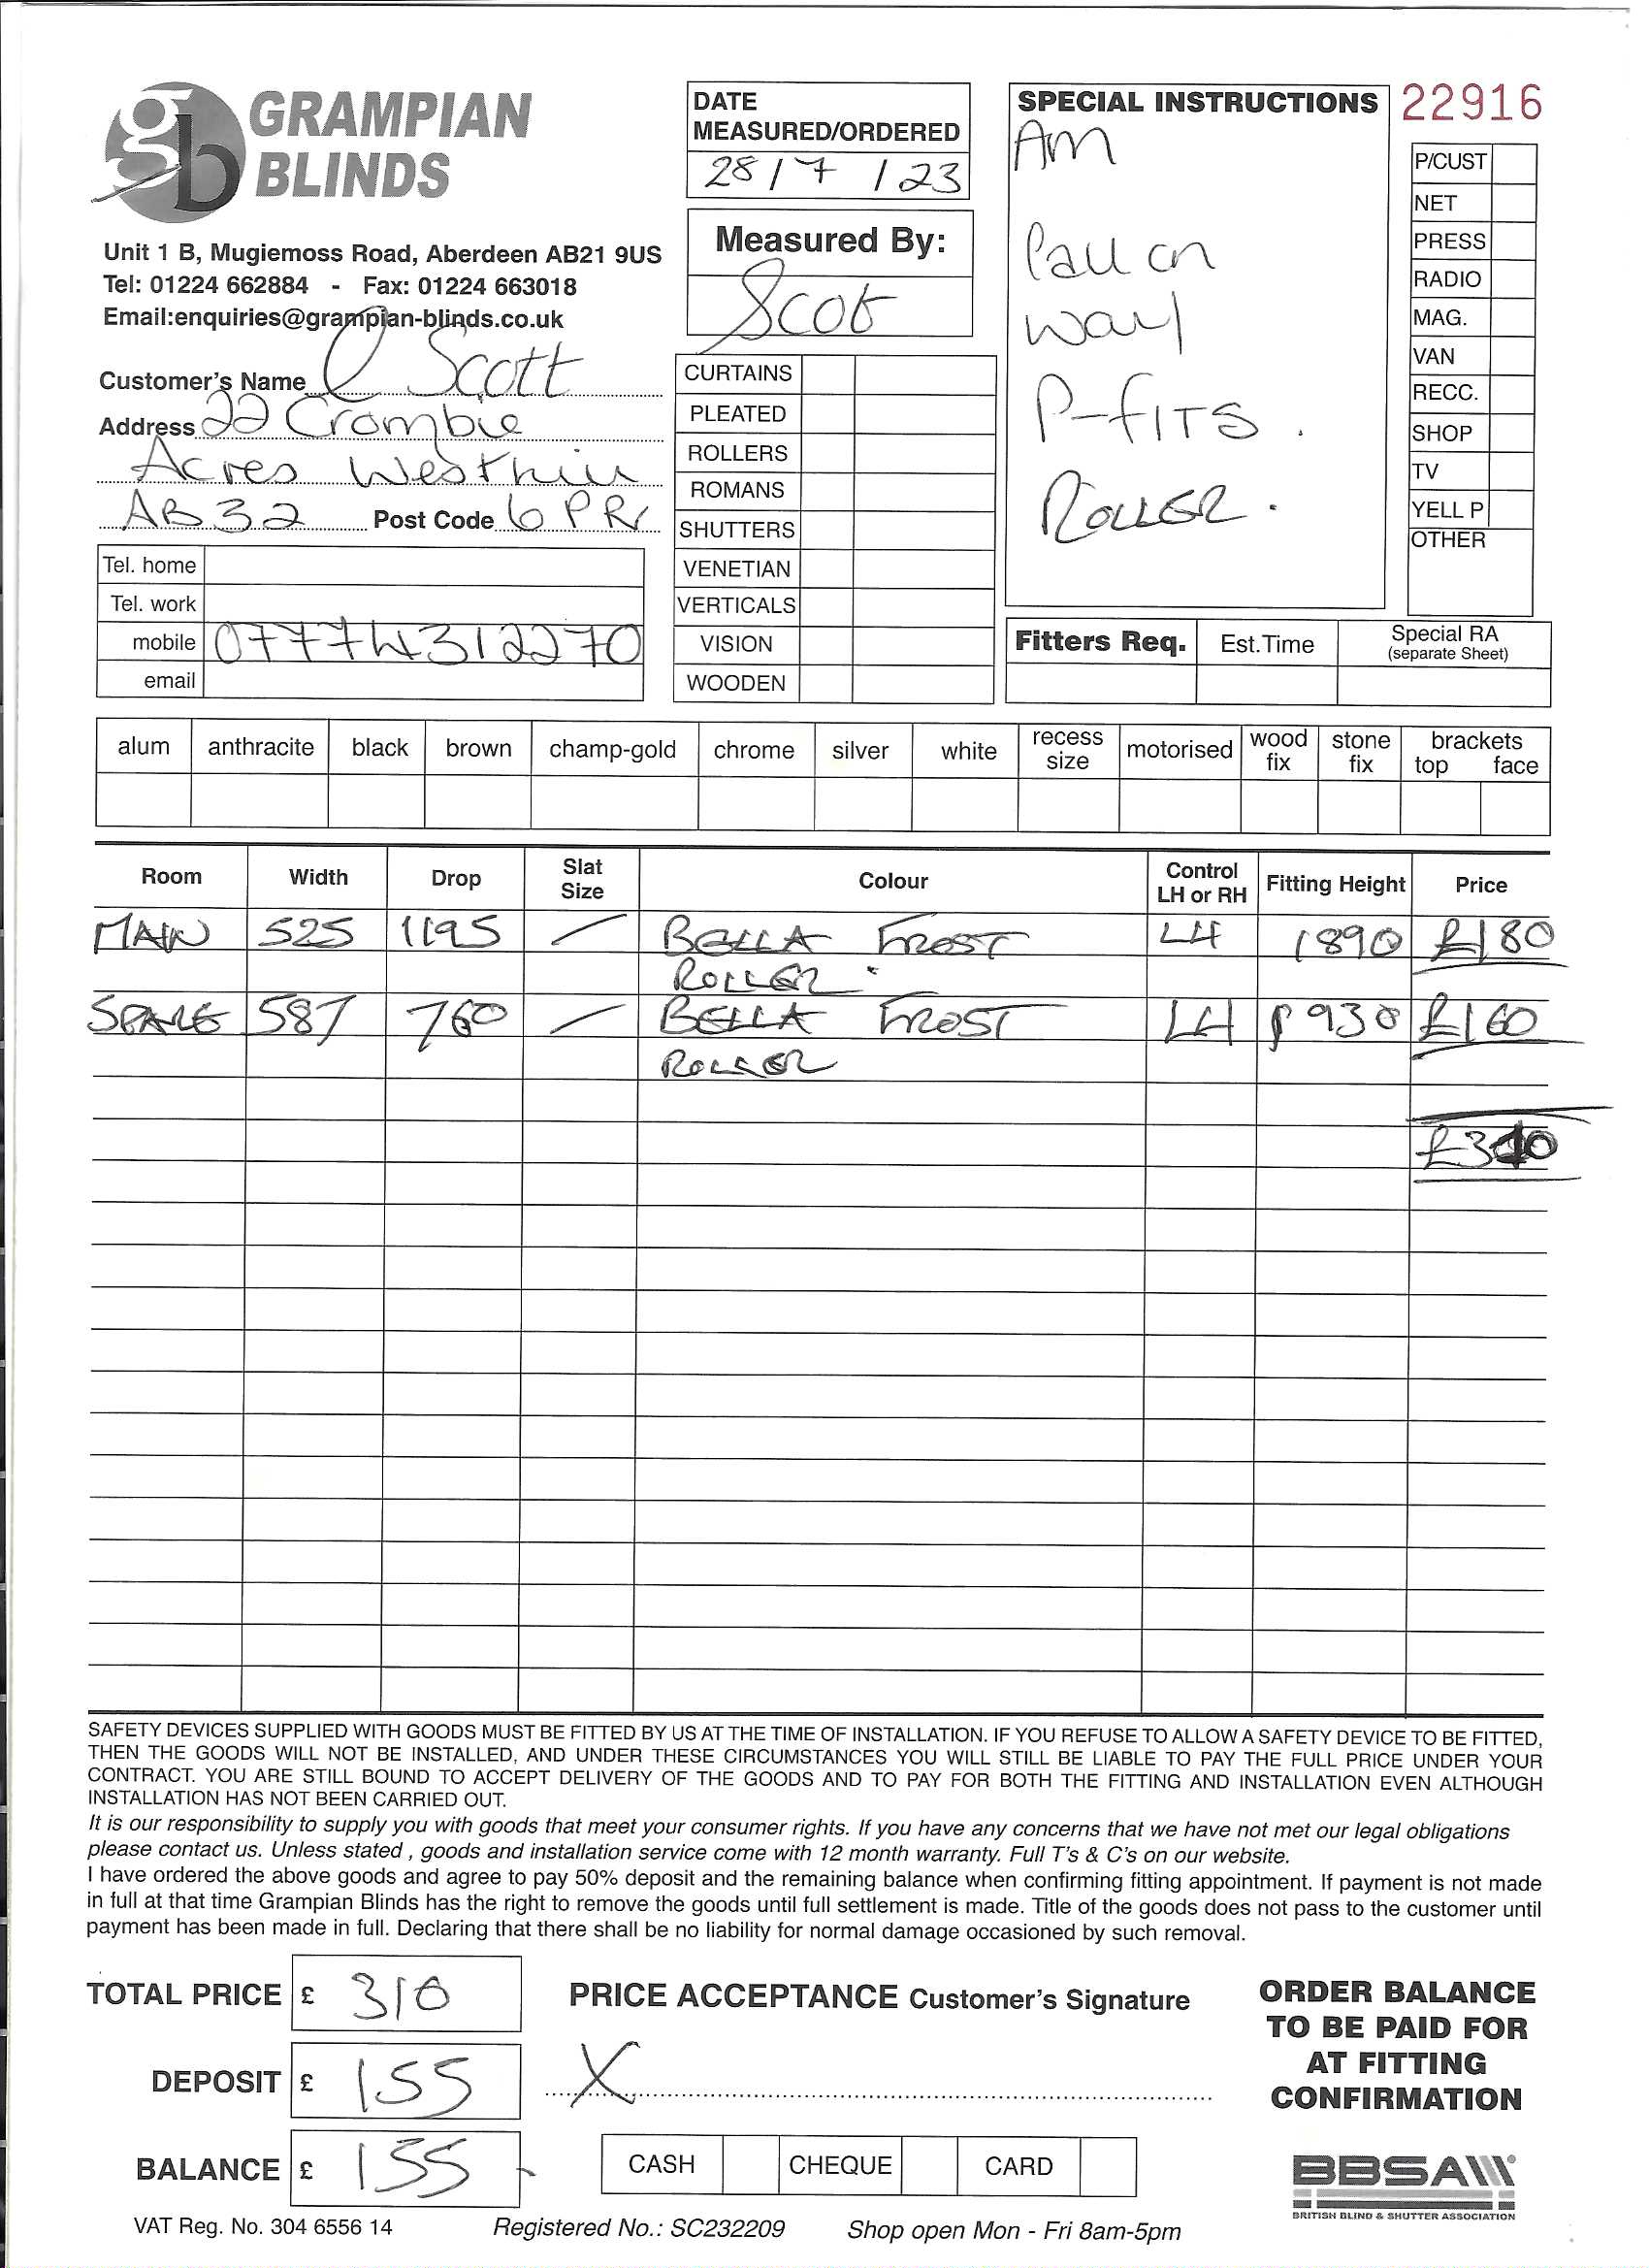 gb GRAMPIAN BLINDS
Unit 1 B, Mugiemoss Road, Aberdeen AB21 9US
Tel: 01224 662884 - Fax: 01224 663018
Email:enquiries@grampian-blinds.co.uk
Customer's Name C Scott
Address 22 Crombie
Acres Westhill
AB32 Post Code 6PR
Tel. home
Tel. work
mobile 07774312270
email
DATE
MEASURED/ORDERED
28 / 7 / 23
Measured By:
Scot
CURTAINS
PLEATED
ROLLERS
ROMANS
SHUTTERS
VENETIAN
VERTICALS
VISION
WOODEN
SPECIAL INSTRUCTIONS
Am
Call on
way
P-FITS.
ROLLER.
22916
P/CUST
NET
PRESS
RADIO
MAG.
VAN
RECC.
SHOP
TV
YELL P
OTHER
Fitters Req. Est.Time Special RA
(separate Sheet)
alum anthracite black brown champ-gold chrome silver white recess size motorised wood fix stone fix brackets top face
Room Width Drop Slat Size Colour Control LH or RH Fitting Height Price
MAIN 525 1195 / BELLA FROST LH 1890 £180
ROLLER
SPARE 587 760 / BELLA FROST LH 1930 £160
ROLLER
£310
SAFETY DEVICES SUPPLIED WITH GOODS MUST BE FITTED BY US AT THE TIME OF INSTALLATION. IF YOU REFUSE TO ALLOW A SAFETY DEVICE TO BE FITTED,
THEN THE GOODS WILL NOT BE INSTALLED, AND UNDER THESE CIRCUMSTANCES YOU WILL STILL BE LIABLE TO PAY THE FULL PRICE UNDER YOUR
CONTRACT. YOU ARE STILL BOUND TO ACCEPT DELIVERY OF THE GOODS AND TO PAY FOR BOTH THE FITTING AND INSTALLATION EVEN ALTHOUGH
INSTALLATION HAS NOT BEEN CARRIED OUT.
It is our responsibility to supply you with goods that meet your consumer rights. If you have any concerns that we have not met our legal obligations
please contact us. Unless stated , goods and installation service come with 12 month warranty. Full T's & C's on our website.
I have ordered the above goods and agree to pay 50% deposit and the remaining balance when confirming fitting appointment. If payment is not made
in full at that time Grampian Blinds has the right to remove the goods until full settlement is made. Title of the goods does not pass to the customer until
payment has been made in full. Declaring that there shall be no liability for normal damage occasioned by such removal.
TOTAL PRICE £ 310
DEPOSIT £ 155
BALANCE £ 155
PRICE ACCEPTANCE Customer's Signature
X
CASH CHEQUE CARD
ORDER BALANCE
TO BE PAID FOR
AT FITTING
CONFIRMATION
BBSA
BRITISH BLIND & SHUTTER ASSOCIATION
VAT Reg. No. 304 6556 14 Registered No.: SC232209 Shop open Mon - Fri 8am-5pm